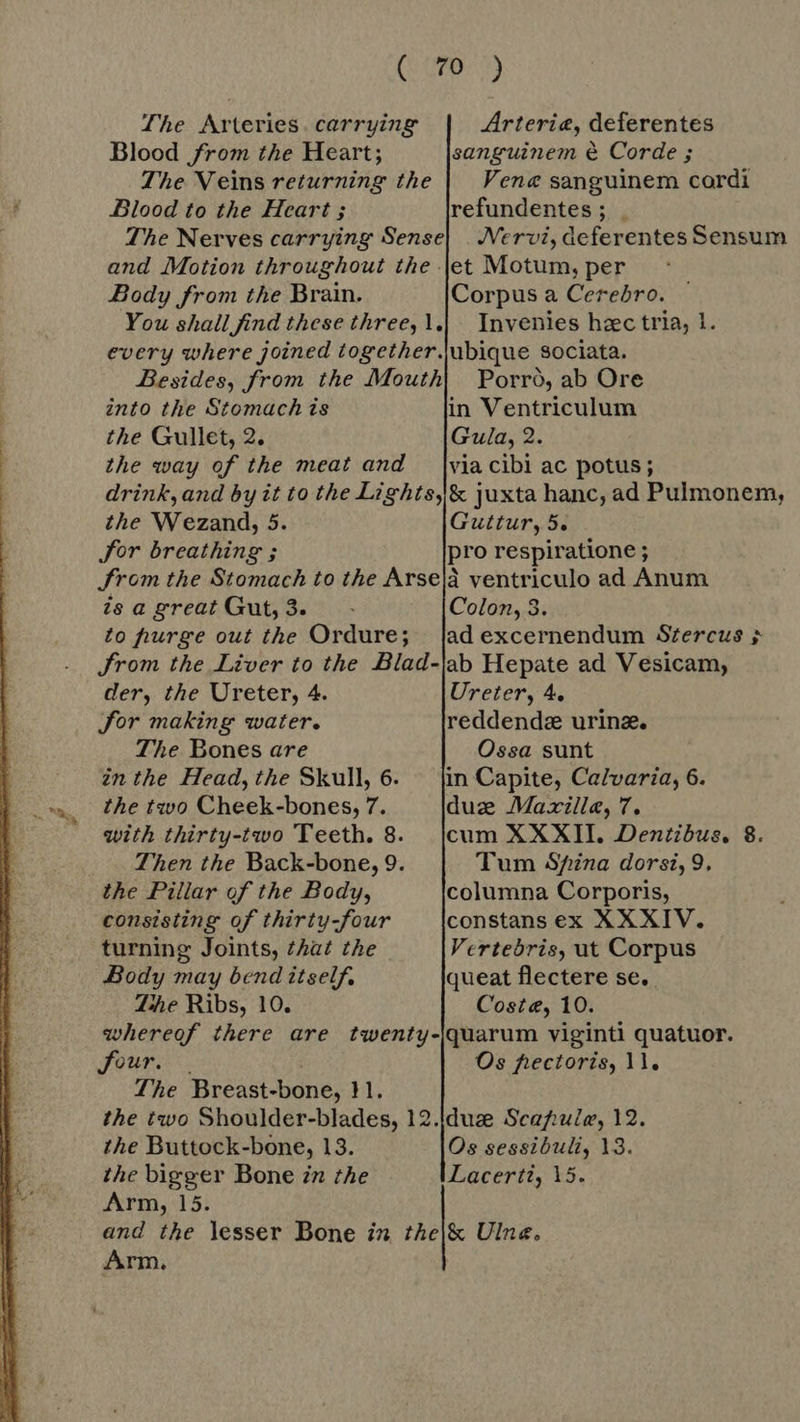 ( 70 )
The Arteries carrying
Blood from the Heart;
The Veins returning the
Blood to the Heart ;
The Nerves carrying Sense
and Motion throughout the
Body from the Brain.
You shall find these three, 1.
every where joined together.
Besides, from the Mouth
into the Stomach is
the Gullet, 2.
the way of the meat and
drink, and by it to the Lights,
the Wezand, 5.
for breathing ;
from the Stomach to the Arse
is a great Gut, 3.
to purge out the Ordure;
from the Liver to the Blad-
der, the Ureter, 4.
for making water.
The Bones are
in the Head, the Skull, 6.
the two Cheek-bones, 7.
with thirty-two Teeth. 8.
Then the Back-bone, 9.
the Pillar of the Body,
consisting of thirty-four
turning Joints, that the
Body may bend itself.
The Ribs, 10.
whereof there are twenty-
four.
The Breast-bone, 11.
the two Shoulder-blades, 12.
the Buttock-bone, 13.
the bigger Bone in the
Arm, 15.
and the lesser Bone in the
Arm.
Arteriæ, deferentes
sanguinem è Corde ;
Venæ sanguinem cordi
refundentes ;
Nervi, deferentes Sensum
et Motum, per
Corpus a Cerebro.
Invenies hæc tria, 1.
ubique sociata.
Porrò, ab Ore
in Ventriculum
Gula, 2.
via cibi ac potus;
& juxta hanc, ad Pulmonem,
Guttur, 5.
pro respiratione ;
à ventriculo ad Anum
Colon, 3.
ad excernendum Stercus ;
ab Hepate ad Vesicam,
Ureter, 4.
reddendæ urinæ.
Ossa sunt
in Capite, Calvaria, 6.
duæ Maxillæ, 7.
cum XXXII. Dentibus. 8.
Tum Spina dorsi, 9.
columna Corporis,
constans ex XXXIV.
Vertebris, ut Corpus
queat flectere se.
Costæ, 10.
quarum viginti quatuor.
Os pectoris, 11.
duæ Scapulæ, 12.
Os sessibuli, 13.
Lacerti, 15.
& Ulnæ.